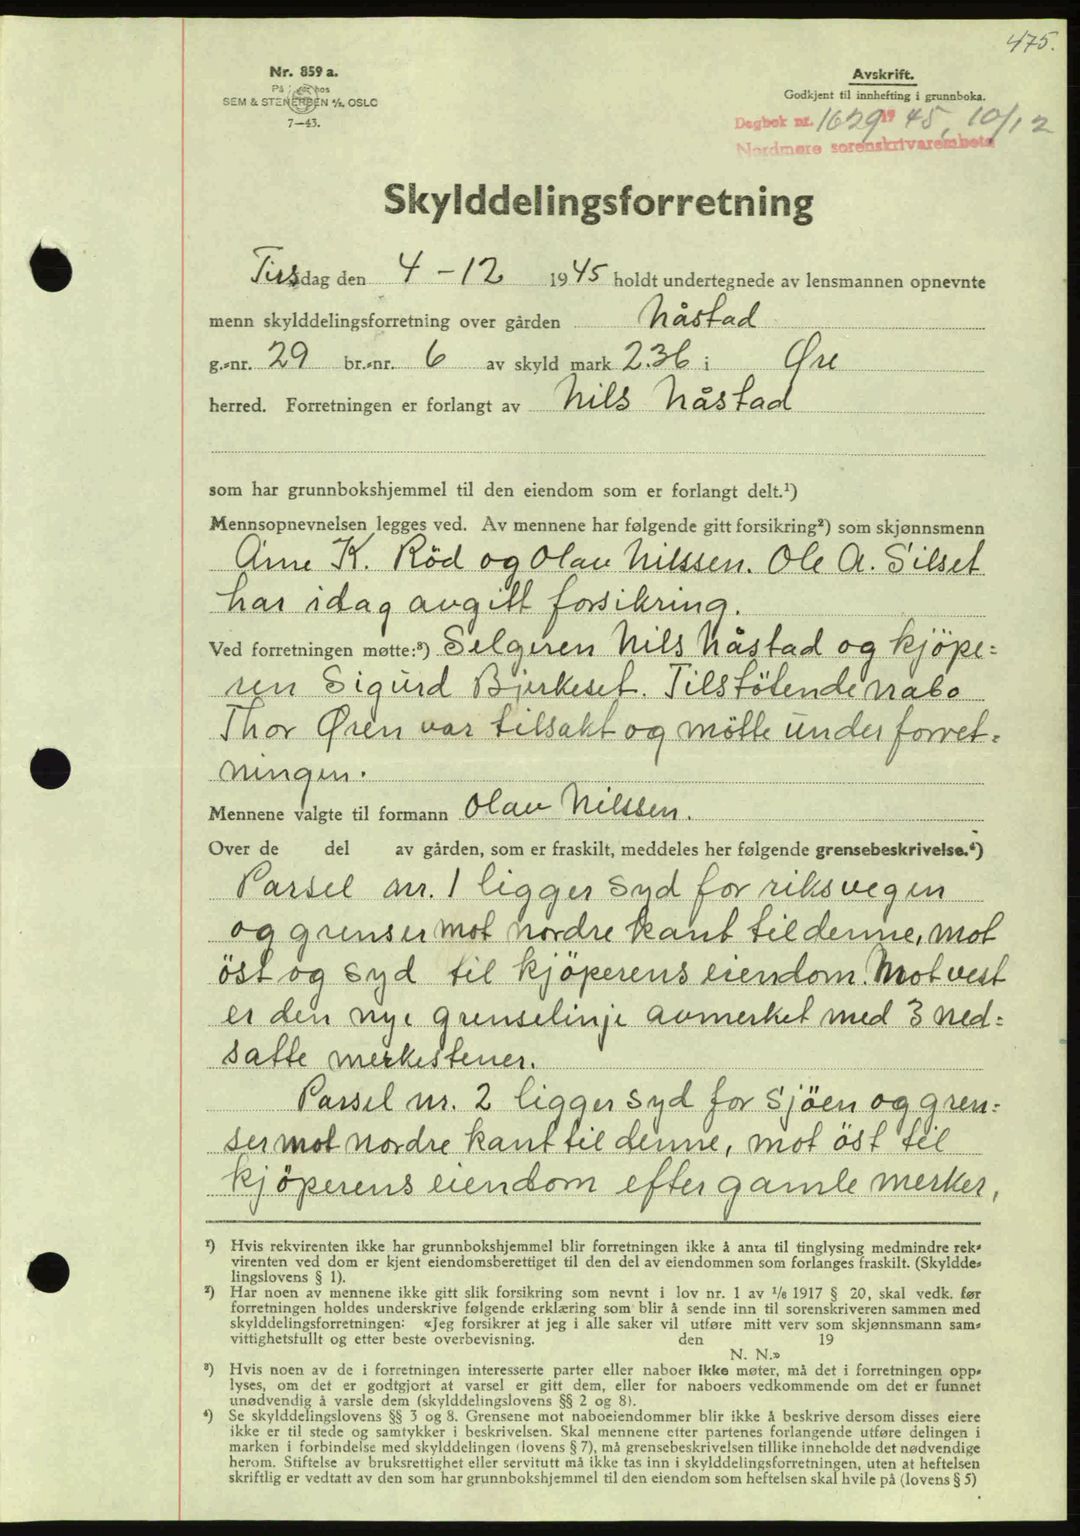 475.
Nr. 859 a.
På hos
SEM & STENERSEN A/S, OSLO
7—43.
Avskrift.
Godkjent til innhefting i grunnboka.
Dagbok nr. 1629 19 45, 10/12
Nordmøre sorenskrivarembete
Skylddelingsforretning
Tirsdag den 4 – 12 1945 holdt undertegnede av lensmannen opnevnte
menn skylddelingsforretning over gården Nåstad
g.-nr. 29 br.-nr. 6 av skyld mark 2.36 i Øre
herred. Forretningen er forlangt av Nils Nåstad
som har grunnbokshjemmel til den eiendom som er forlangt delt.¹)
Mennsopnevnelsen legges ved. Av mennene har følgende gitt forsikring²) som skjønnsmenn
Arne K. Röd og Olav Nilssen. Ole A. Silset
har idag avgitt forsikring.
Ved forretningen møtte:³) Selgeren Nils Nåstad og kjöpe=
ren Sigurd Bjerkeset. Tilstötende nabo
Thor Øren var tilsakt og mötte under forret=
ningen.
Mennene valgte til formann Olav Nilssen.
Over de del av gården, som er fraskilt, meddeles her følgende grensebeskrivelse.⁴)
Parsel nr. 1 ligger syd for riksvegen
og grenser mot nordre kant til denne, mot
öst og syd til kjöperens eiendom. Mot vest
er den nye grenselinje avmerket med 3 ned=
satte merkestener.
Parsel nr. 2 ligger syd for sjöen og gren=
ser mot nordre kant til denne, mot öst til
kjöperens eiendom efter gamle merker,
¹) Hvis rekvirenten ikke har grunnbokshjemmel blir forretningen ikke å anta til tinglysing medmindre rek-
virenten ved dom er kjent eiendomsberettiget til den del av eiendommen som forlanges fraskilt. (Skyldde-
lingslovens § 1).
²) Har noen av mennene ikke gitt slik forsikring som nevnt i lov nr. 1 av 1/6 1917 § 20, skal vedk. før
forretningen holdes underskrive følgende erklæring som blir å sende inn til sorenskriveren sammen med
skylddelingsforretningen: «Jeg forsikrer at jeg i alle saker vil utføre mitt verv som skjønnsmann sam-
vittighetsfullt og etter beste overbevisning. den 19
N. N.»
³) Hvis noen av de i forretningen interesserte parter eller naboer ikke møter, må det i forretningen opp-
lyses, om det er godtgjort at varsel er gitt dem, eller for naboers vedkommende om det er funnet
unødvendig å varsle dem (skylddelingslovens §§ 2 og 8).
⁴) Se skylddelingslovens §§ 3 og 8. Grensene mot naboeiendommer blir ikke å beskrive dersom disses eiere
ikke er til stede og samtykker i beskrivelsen. Skal mennene etter partenes forlangende utføre delingen i
marken i forbindelse med skylddelingen (lovens § 7), må grensebeskrivelsen tillike inneholde det nødvendige
herom. Stiftelse av bruksrettighet eller servitutt må ikke tas inn i skylddelingsforretningen, uten at heftelsen
skriftlig er vedtatt av den som har grunnbokshjemmel til den eiendom som heftelsen skal hvile på (lovens § 5)